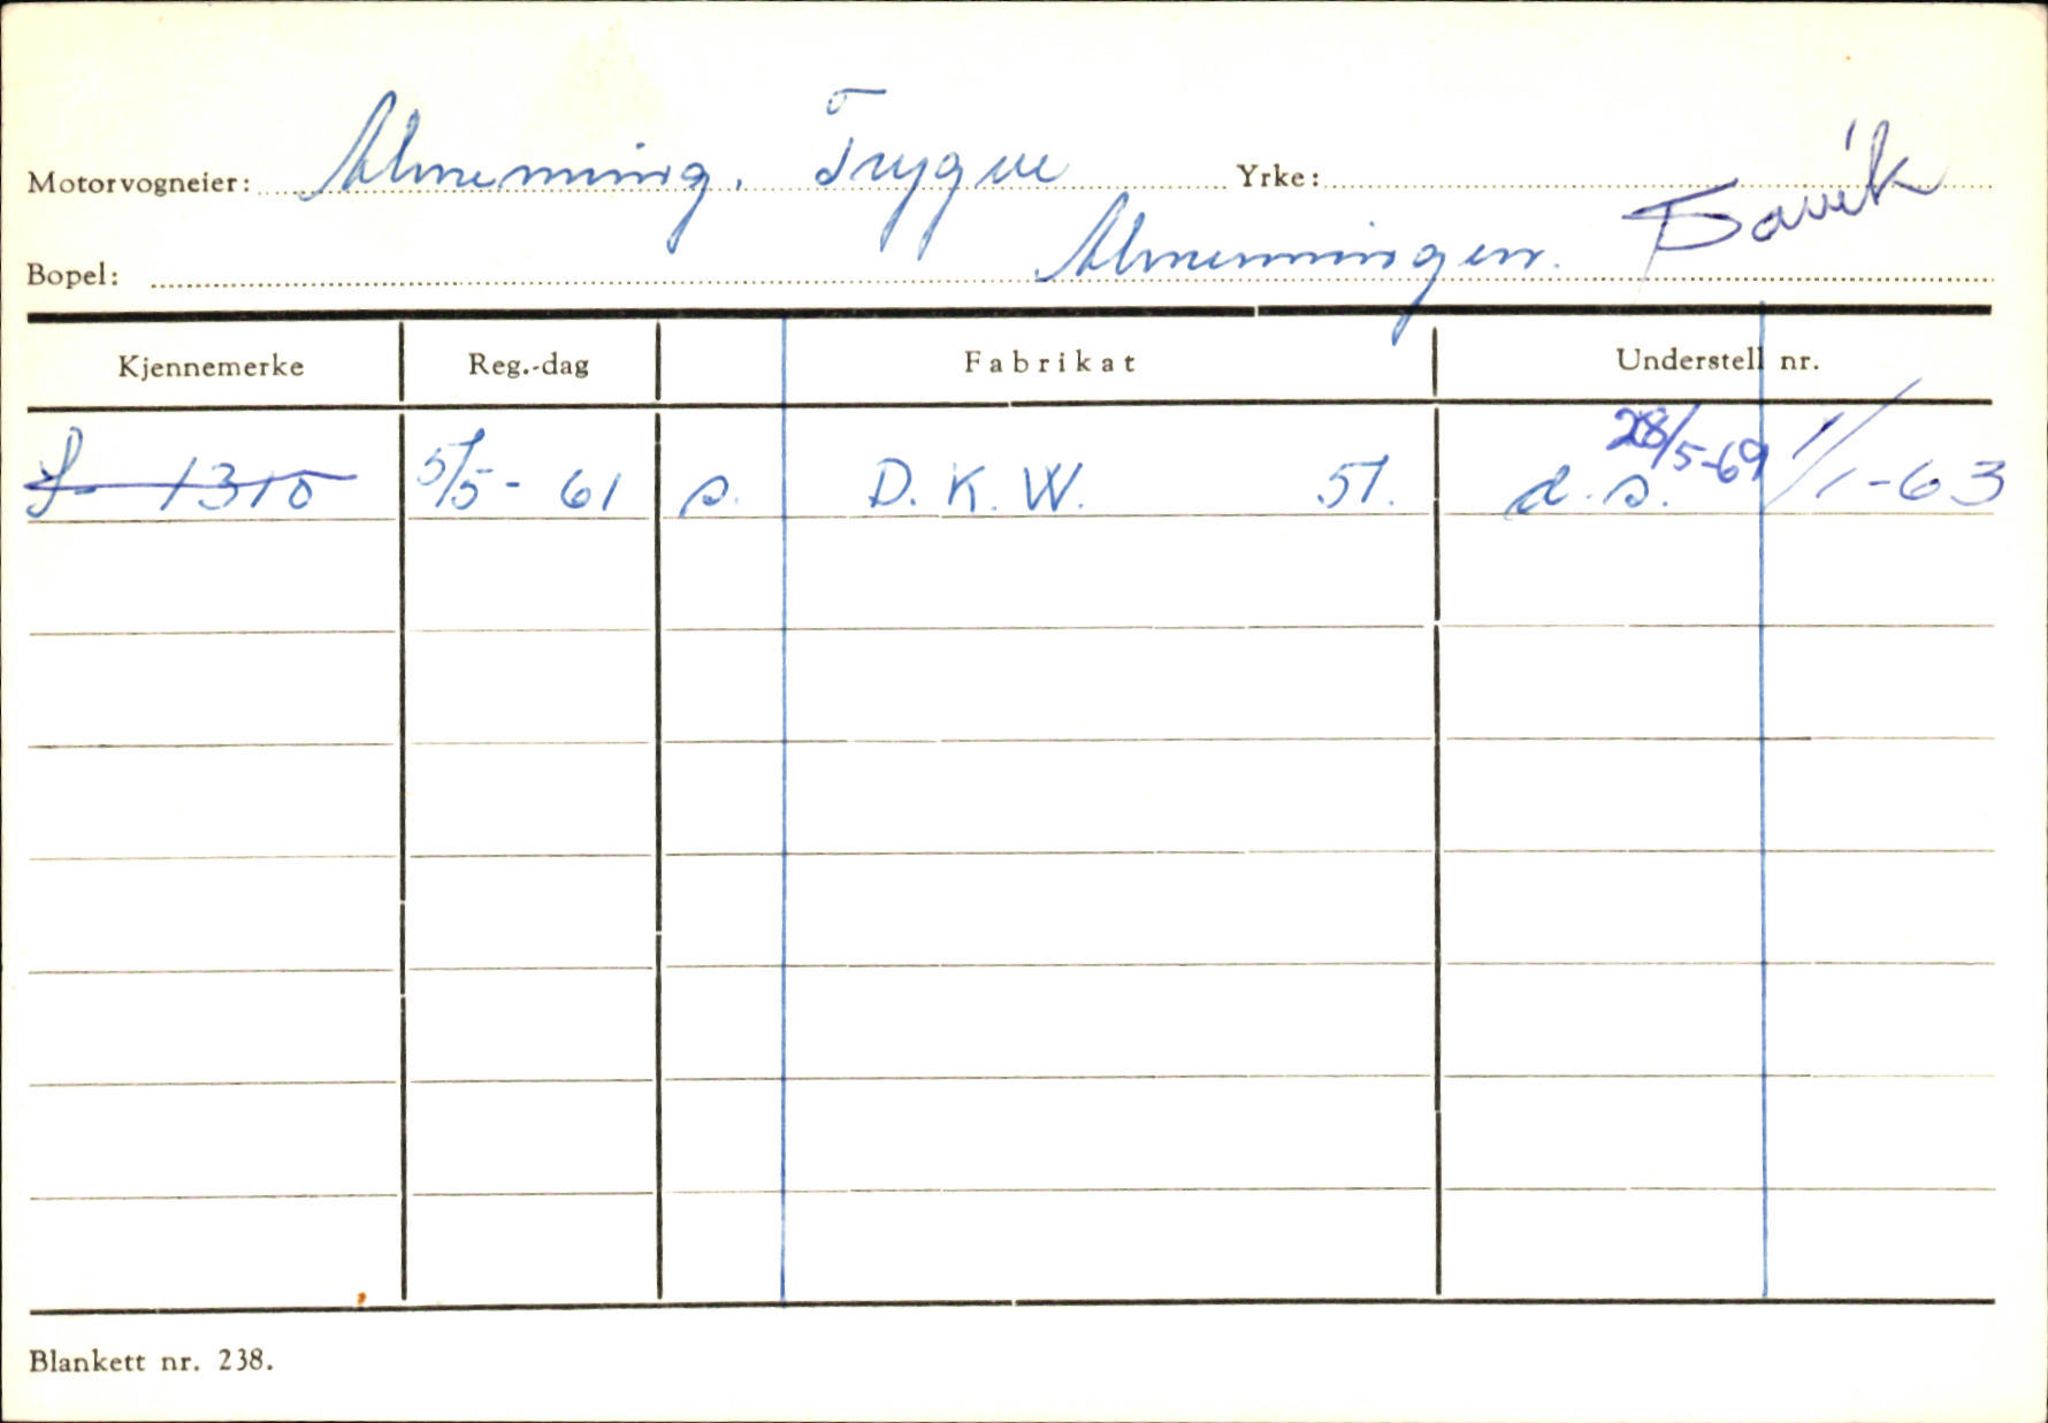 Motorvogneier: Almenning, Trygve Yrke:
Bopel: Almenningen. Davik
Kjennemerke Reg.-dag Fabrikat Understell nr.
S- 1310 5/5- 61 s. D.K.W. 51. d.s. 28/5-69 1/1-63
Blankett nr. 238.